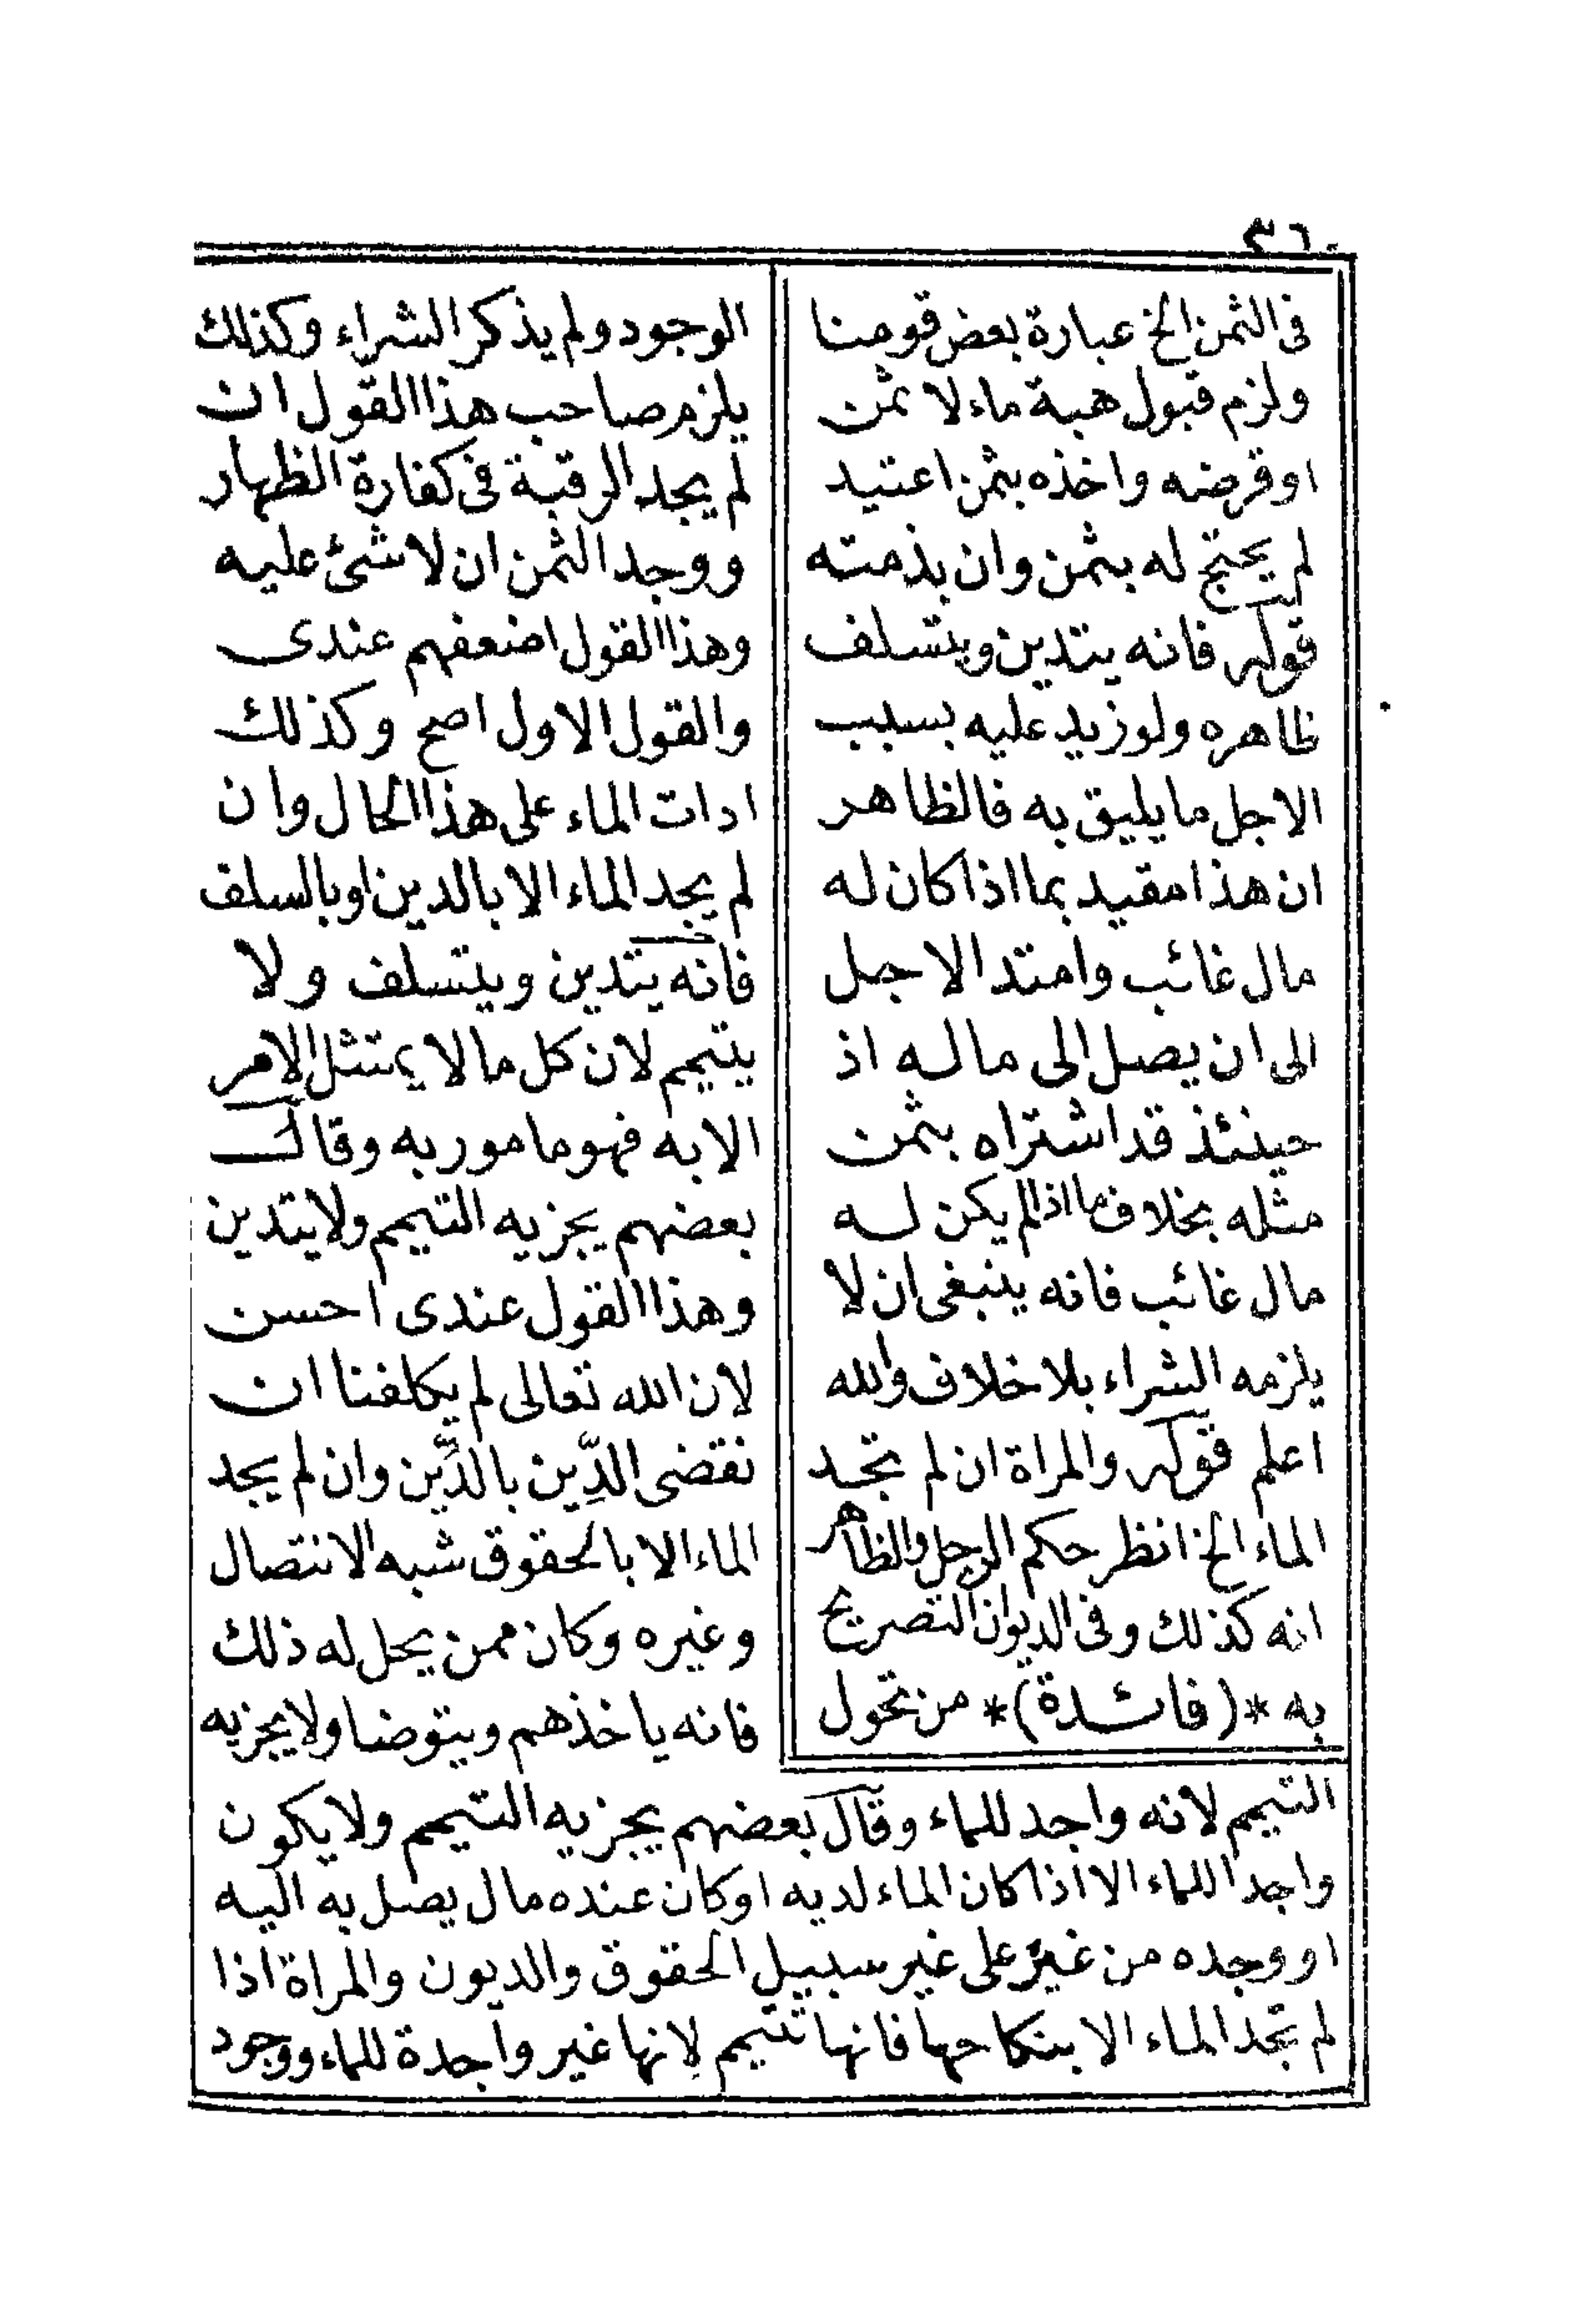 ٣٦٠
فى الثمن الخ عبارة بعض قومنا
ولزم قبول هبة ماء لا ثمن
او قرضه واخذه بثمن اعتيد
لم يحتج له بثمن وان بذمته
قوله فانه يتدين ويتسلف
ظاهره ولو زيد عليه بسبب
الاجل ما يليق به فالظاهر
ان هذا مقيد بما اذا كان له
مال غائب وامتد الاجل
الى ان يصل الى ماله اذ
حينئذ قد اشتراه بثمن
مثله بخلاف ما اذا لم يكن له
مال غائب فانه ينبغى ان لا
يلزمه الشراء بلا خلاف والله
اعلم قوله والمراة ان لم تجد
الماء الخ انظر حكم الرجل والظاهر
انه كذلك وفى الديوان التصريح
به *(فائدة)* من تحول
الوجود ولم يذكر الشراء وكذلك
يلزم صاحب هذا القول ان
لم يجد الرقبة فى كفارة الظهار
ووجد الثمن ان لا شئ عليه
وهذا القول اضعفهم عندى
والقول الاول اصح وكذلك
ادات الماء على هذا الحال وان
لم يجد الماء الا بالدين او بالسلف
فانه يتدين ويتسلف ولا
يتيمم لان كل ما لا يمتثل الامر
الا به فهو مامور به وقال
بعضهم يجزيه التيمم ولا يتدين
وهذا القول عندى احسن
لان الله تعالى لم يكلفنا ان
نقضى الدِّين بالدَّين وان لم يجد
الماء الا بالحقوق شبه الانتصال
وغيره وكان ممن يحل له ذلك
فانه ياخذهم ويتوضا ولا يجزيه
التيمم لانه واجد للماء وقال بعضهم يجزيه التيمم ولا يكون
واجدا للماء الا اذا كان الماء لديه او كان عنده مال يصل به اليه
او وجده من غيره على غير سبيل الحقوق والديون والمراة اذا
لم تجد الماء الا بنكاحها فانها تتيمم لانها غير واجدة للماء ووجود